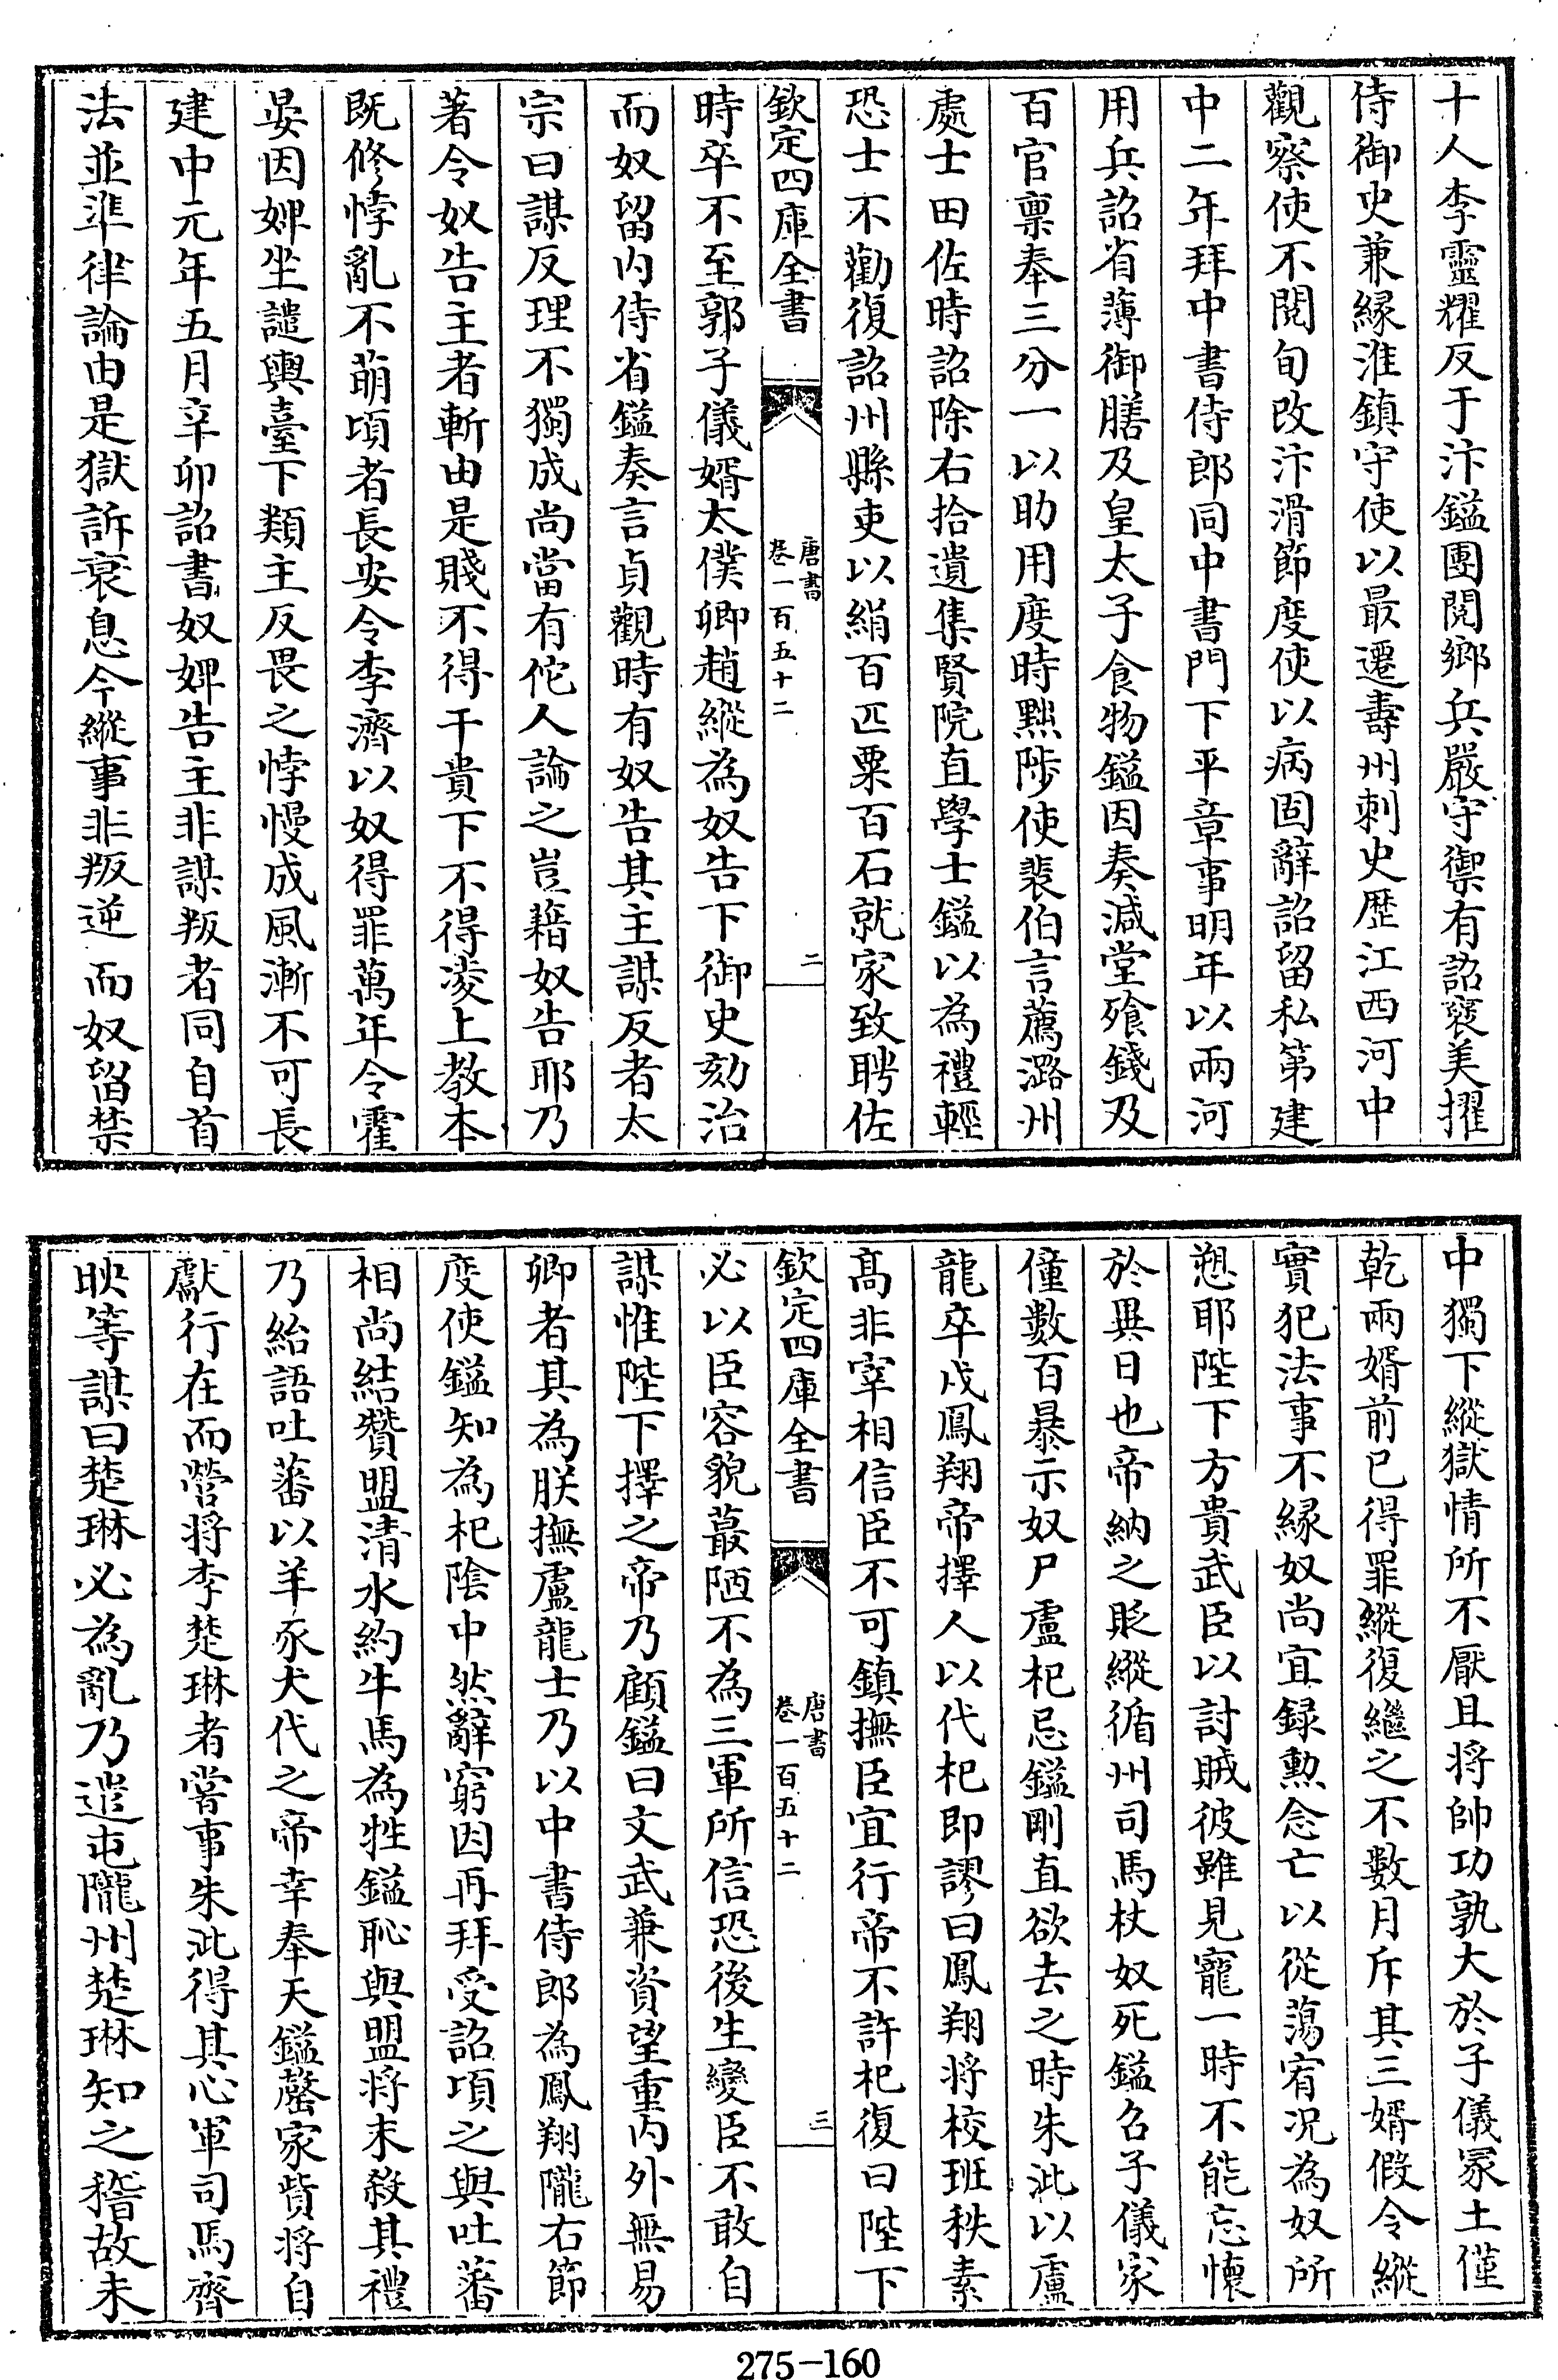 十人李靈耀反于汴鎰團閱鄉兵嚴守禦有詔襃美擢
侍御史兼縁淮鎮守使以最遷壽州刺史歴江西河中
觀察使不閱旬改汴滑節度使以病固辭詔留私第建
中二年拜中書侍郎同中書門下平章事明年以兩河
用兵詔省薄御膳及皇太子食物鎰因奏減堂飱錢及
百官稟奉三分一以助用度時黜陟使裴伯言薦潞州
處士田佐時詔除右拾遺集賢院直學士鎰以為禮輕
恐士不勸復詔州縣吏以絹百匹粟百石就家致聘佐
欽定四庫全書
唐書
卷一百五十二
二
時卒不至郭子儀婿太僕卿趙縱為奴告下御史劾治
而奴留内侍省鎰奏言貞觀時有奴告其主謀反者太
宗曰謀反理不獨成尚當有佗人論之豈藉奴告耶乃
著令奴告主者斬由是賤不得干貴下不得凌上教本
既修悖亂不萌頃者長安令李濟以奴得罪萬年令霍
晏因婢坐譴輿臺下類主反畏之悖慢成風漸不可長
建中元年五月辛卯詔書奴婢告主非謀叛者同自首
法並準律論由是獄訴衰息今縱事非叛逆而奴留禁
中獨下縱獄情所不厭且将帥功孰大於子儀冢土僅
乾兩婿前已得罪縱復繼之不數月斥其三婿假令縱
實犯法事不縁奴尚宜録勲念亡以從蕩宥况為奴所
愬耶陛下方貴武臣以討賊彼雖見寵一時不能忘懷
於異日也帝納之貶縱循州司馬杖奴死鎰召子儀家
僮數百暴示奴尸盧杞忌鎰剛直欲去之時朱泚以盧
龍卒戍鳳翔帝擇人以代杞即謬曰鳳翔将校班秩素
髙非宰相信臣不可鎮撫臣宜行帝不許杞復曰陛下
欽定四庫全書
唐書
卷一百五十二
三
必以臣容貌蕞陋不為三軍所信恐後生變臣不敢自
謀惟陛下擇之帝乃顧鎰曰文武兼資望重内外無易
卿者其為朕撫盧龍士乃以中書侍郎為鳳翔隴右節
度使鎰知為杞隂中然辭窮因再拜受詔頃之與吐蕃
相尚結贊盟清水約牛馬為牲鎰恥與盟将末殺其禮
乃紿語吐蕃以羊豕犬代之帝幸奉天鎰罄家貲将自
獻行在而營将李楚琳者嘗事朱泚得其心軍司馬齊
映等謀曰楚琳必為亂乃遣屯隴州楚琳知之稽故未
275-160